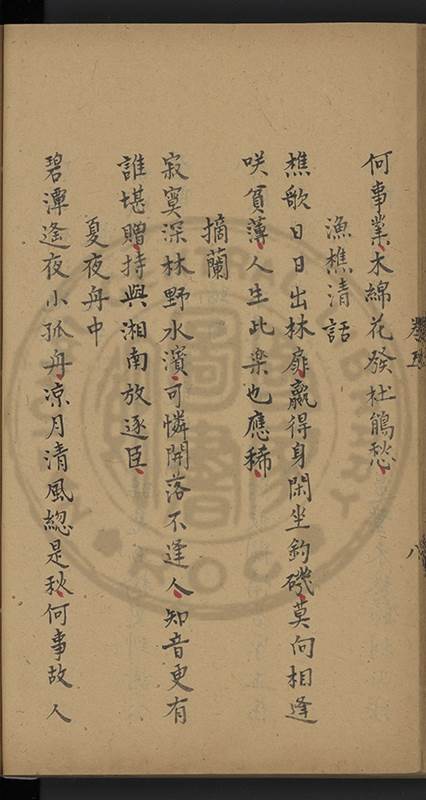 何事業木綿花發杜鵑愁
漁樵清話
樵歌日日出林扉贏得身閑坐釣磯莫向相逢
咲貧薄人生此楽也應稀
摘蘭
寂寞深林野水濱可憐開落不逢人知音更有
誰堪贈持與湘南放逐臣
夏夜舟中
碧潭逢夜小孤舟凉月清風緫是秋何事故人